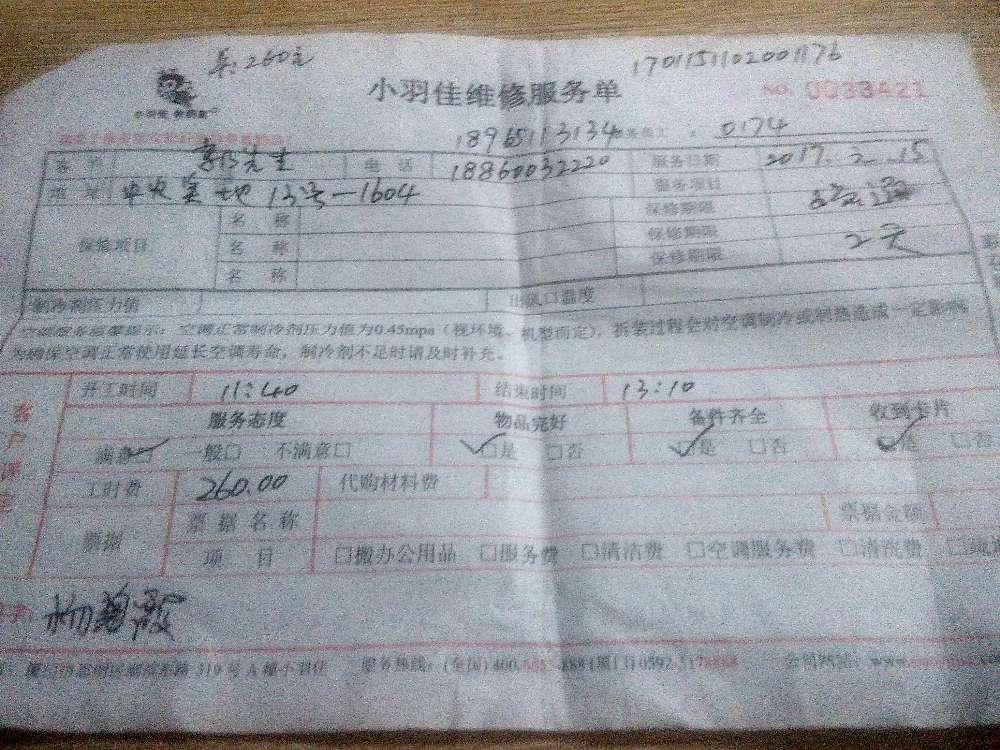 260元
17011511020001176
小羽佳维修服务单
NO. 0033421
18965113134 0174
客户 先生 电话 18860032220 服务日期 2017.2.15
地址 13号-1604 服务项目
保修项目 名称 保修期限
名称 保修期限 2天
名称 保修期限
制冷剂压力值 出风口温度
空调服务温馨提示：空调正常制冷剂压力值为0.45mpa（视环境、机型而定），拆装过程会对空调制冷或制热造成一定影响，
为确保空调正常使用延长空调寿命，制冷剂不足时请及时补充。
开工时间 11:40 结束时间 13:10
服务态度 物品完好 备件齐全 收到卡片
满意□ 一般□ 不满意□ □是 □否 □是 □否 □是 □否
工时费 260.00 代购材料费
票据 票据名称 票据金额
项目 □搬办公用品 □服务费 □清洁费 □空调服务费 □清洗费
319号A幢小羽佳 服务热线：(全国)400 (厦门)0592 公司网站：www.